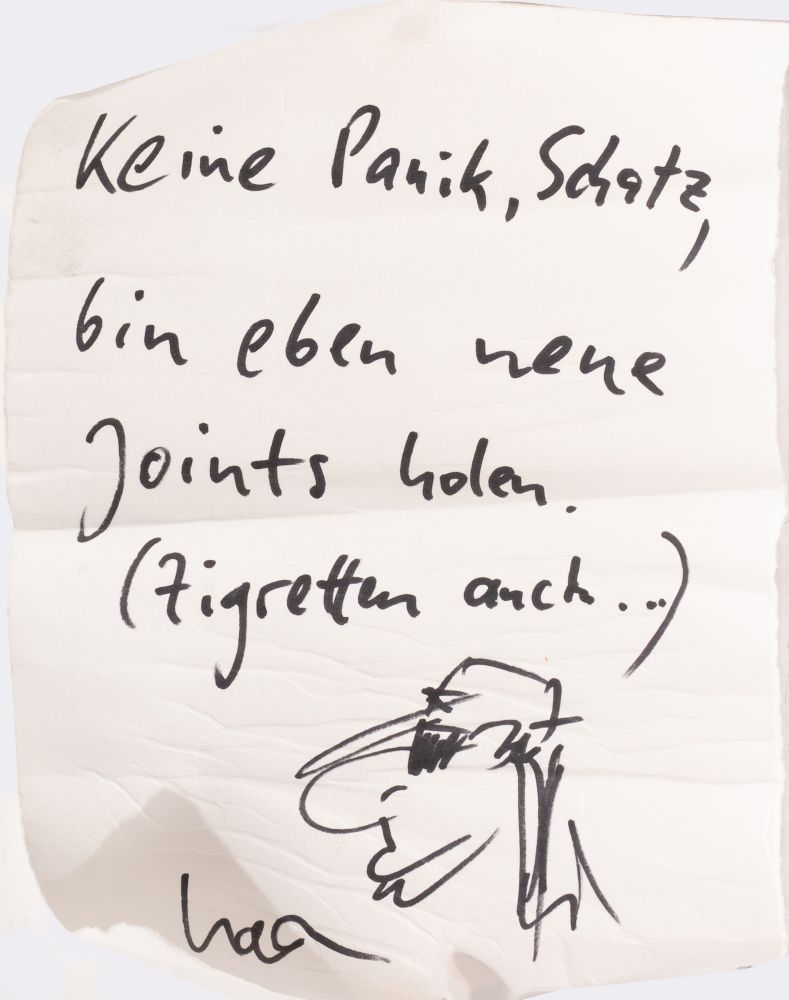 Keine Panik, Schatz,
bin eben neue
Joints holen.
(Zigretten auch...)